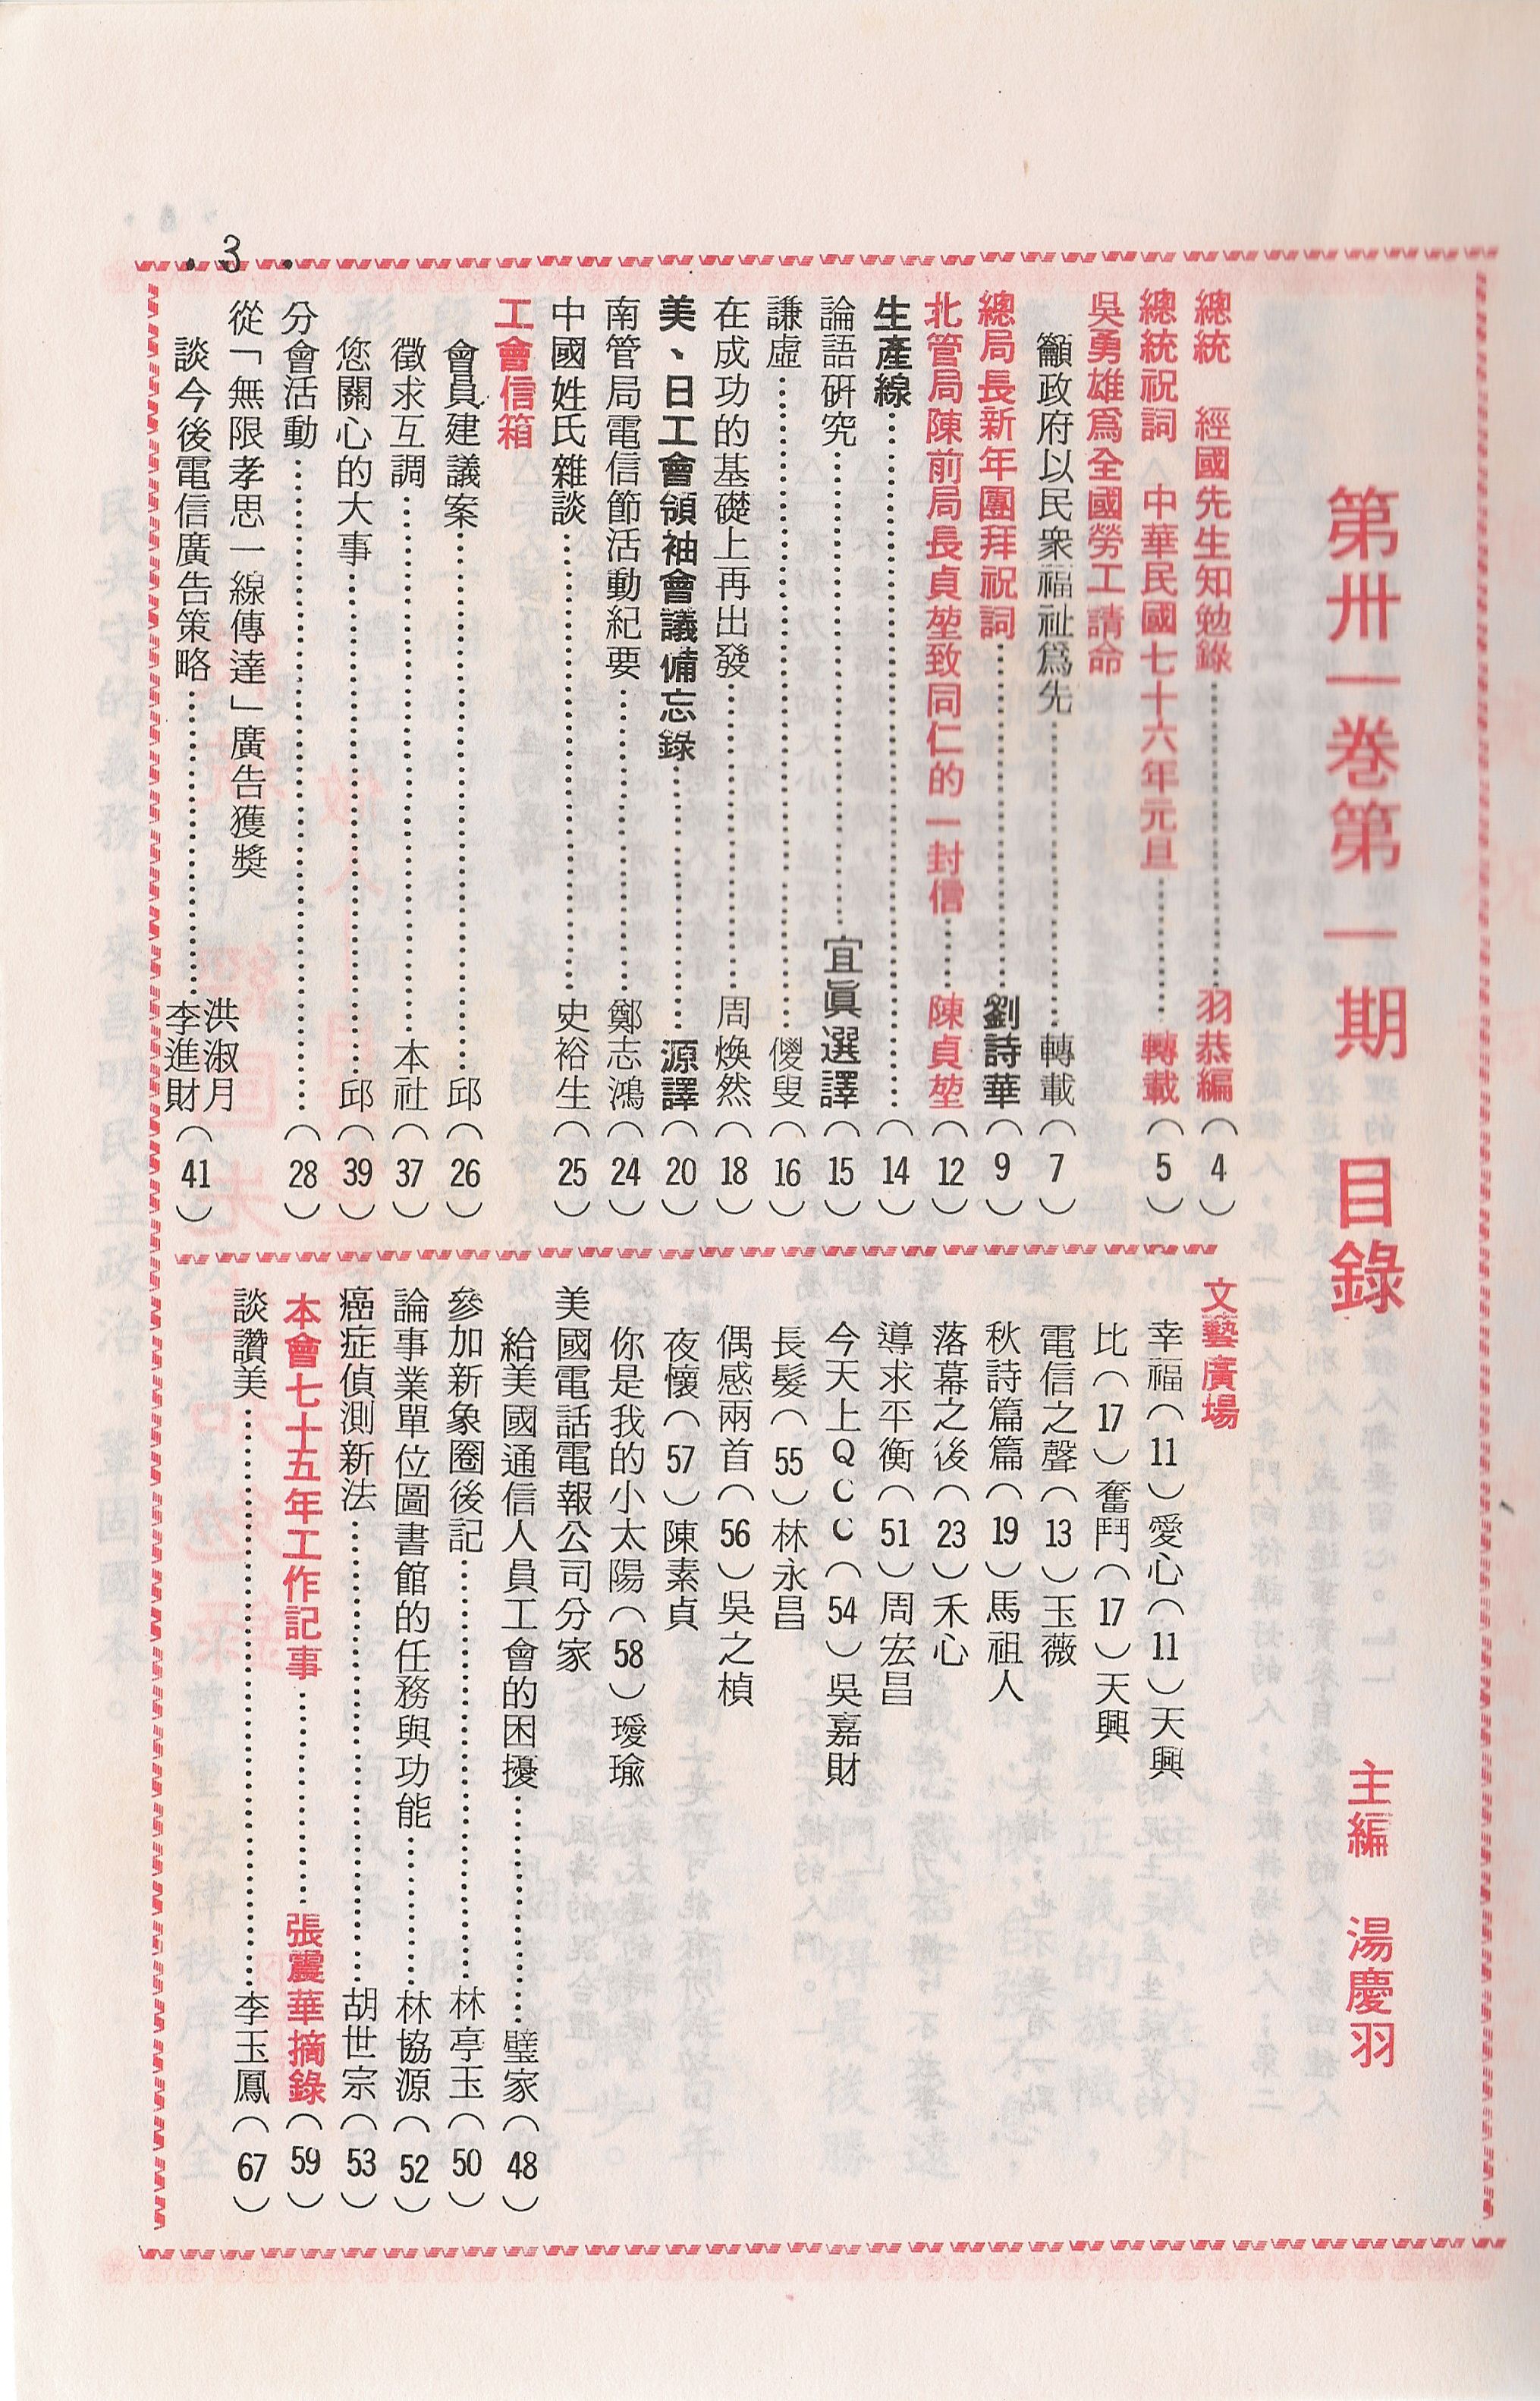 第卅一卷第一期　目錄　主編　湯慶羽
總統　經國先生知勉錄……羽恭編（4）
總統祝詞　中華民國七十六年元旦……轉載（5）
吳勇雄爲全國勞工請命
籲政府以民衆福祉爲先……轉載（7）
總局長新年團拜祝詞……劉詩華（9）
北管局陳前局長貞堃致同仁的一封信……陳貞堃（12）
生產線……（14）
論語研究……宜眞選譯（15）
謙虛……儍叟（16）
在成功的基礎上再出發……周煥然（18）
美、日工會領袖會議備忘錄……源譯（20）
南管局電信節活動紀要……鄭志鴻（24）
中國姓氏雜談……史裕生（25）
工會信箱
會員建議案……邱（26）
徵求互調……本社（37）
您關心的大事……邱（39）
分會活動……（28）
從「無限孝思一線傳達」廣告獲獎
談今後電信廣告策略……洪淑月　李進財（41）
文藝廣場
幸福（11）愛心（11）天興
比（17）奮鬥（17）天興
電信之聲（13）玉薇
秋詩篇篇（19）馬祖人
落幕之後（23）禾心
導求平衡（51）周宏昌
今天上QCC（54）吳嘉財
長髮（55）林永昌
偶感兩首（56）吳之楨
夜懷（57）陳素貞
你是我的小太陽（58）璦瑜
美國電話電報公司分家
給美國通信人員工會的困擾……璧家（48）
參加新象圈後記……林亭玉（50）
論事業單位圖書館的任務與功能……林協源（52）
癌症偵測新法……胡世宗（53）
本會七十五年工作記事……張震華摘錄（59）
談讚美……李玉鳳（67）
．3．